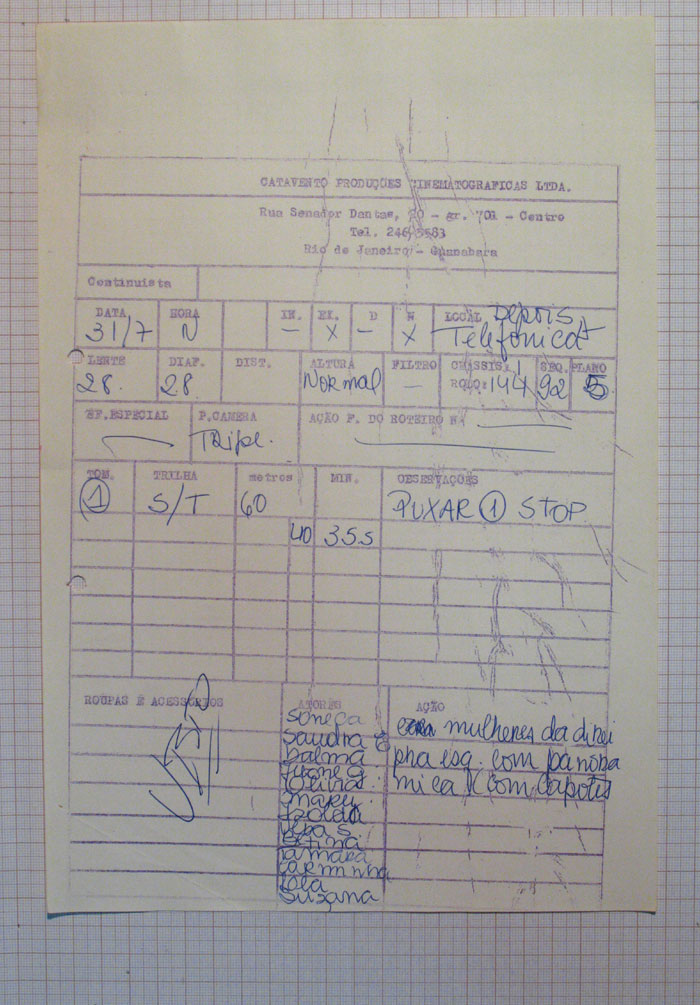 CATAVENTO PRODUÇÕES CINEMATOGRAFICAS LTDA.
Rua Senador Dantas, 20 - gr. 701 - Centro
Tel. 246
Rio de Janeiro - Guanabara
Continuista
DATA HORA IN. EX. D N LOCAL Depois
31/7 N — X — X Telefonica
LENTE DIAF. DIST. ALTURA FILTRO CHASSIS: 1 SEQ. PLANO
28. 28. Normal — ROLO: 144 92 5
EF.ESPECIAL P.CAMERA AÇÃO P. DO ROTEIRO Nº
Tripe.
TOM. TRILHA metros MIN. OBSERVAÇÕES
1 S/T 60 PUXAR 1 STOP
40 35S
ROUPAS E ACESSÓRIOS ATORES AÇÃO
Soneca
mulheres da direi
Sandra
Dalma
pha esq. com panorâ
mica (com Capotes
Vera S.
Tamara
Carminha
Lola
Suzana